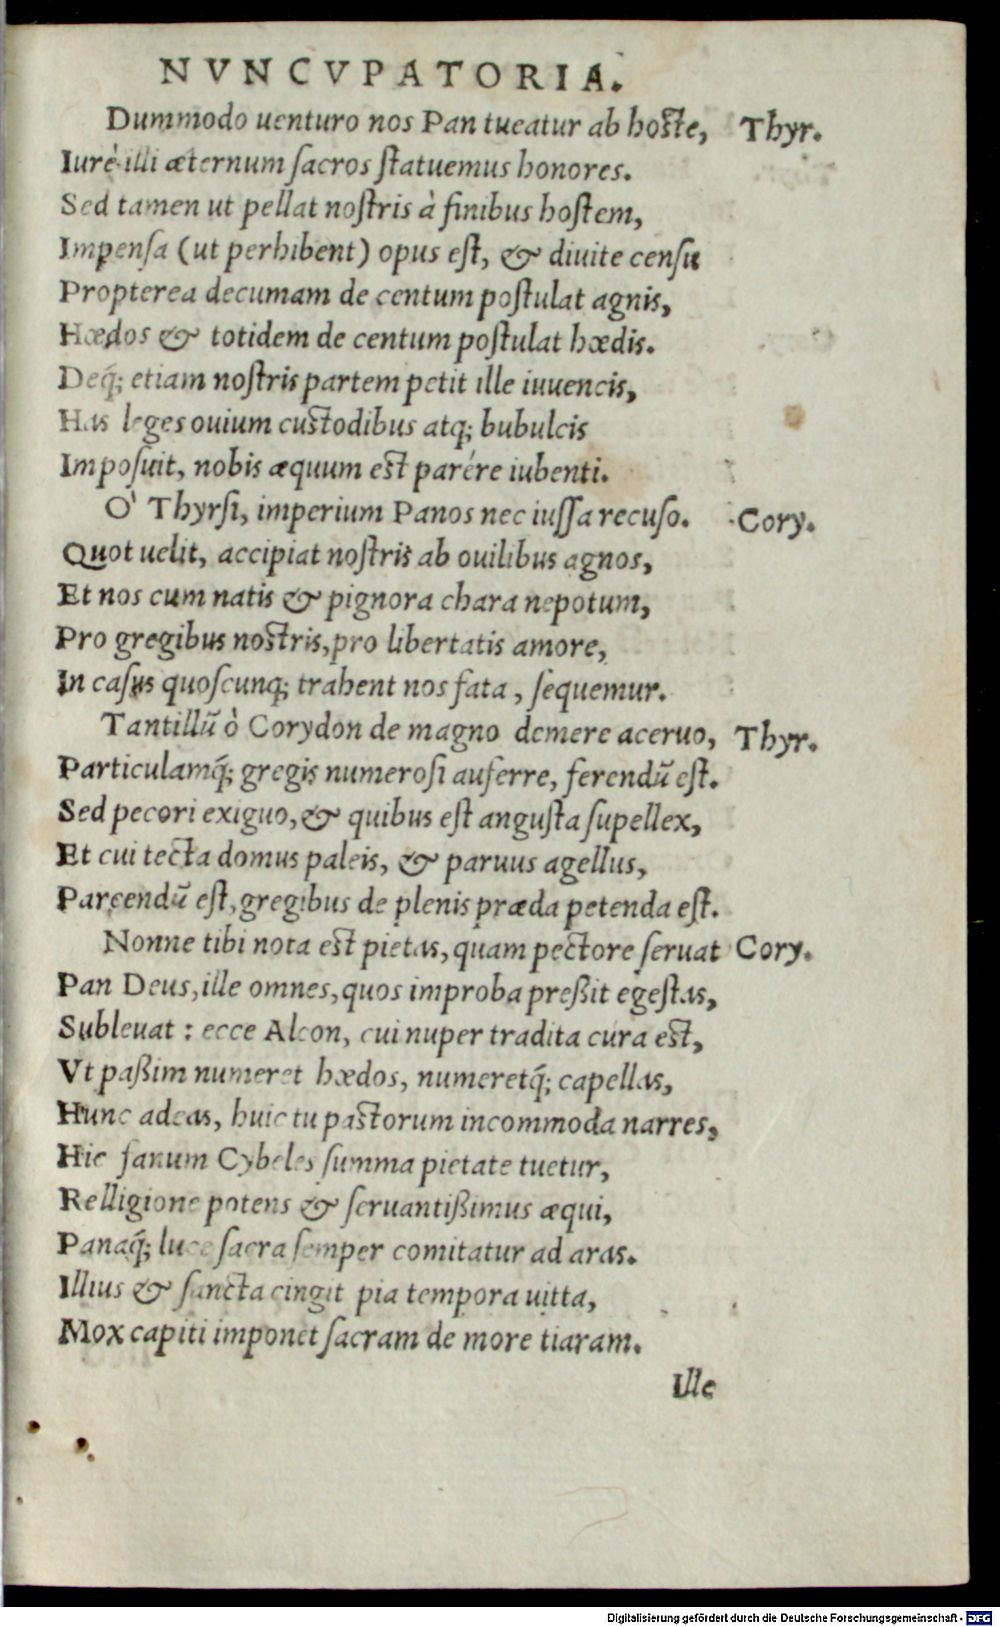 NVNCVPATORIA.
Dummodo uenturo nos Pan tueatur ab hoste, Thyr.
Iurè illi æternum sacros statuemus honores.
Sed tamen ut pellat nostris à finibus hostem,
Impensa (ut perhibent) opus est, & diuite censu
Propterea decumam de centum postulat agnis,
Hœdos & totidem de centum postulat hœdis.
Deq́; etiam nostris partem petit ille iuuencis,
Has leges ouium custodibus atq; bubulcis
Imposuit, nobis æquum est parére iubenti.
O' Thyrsi, imperium Panos nec iussa recuso. Cory.
Quot uelit, accipiat nostris ab ouilibus agnos,
Et nos cum natis & pignora chara nepotum,
Pro gregibus nostris, pro libertatis amore,
In casus quoscunq; trahent nos fata, sequemur.
Tantillū ò Corydon de magno demere aceruo, Thyr.
Particulamq́; gregis numerosi auferre, ferendū est.
Sed pecori exiguo, & quibus est angusta supellex,
Et cui tecta domus paleis, & paruus agellus,
Parcendū est, gregibus de plenis præda petenda est.
Nonne tibi nota est pietas, quam pectore seruat Cory.
Pan Deus, ille omnes, quos improba preßit egestas,
Subleuat: ecce Alcon, cui nuper tradita cura est,
Vt paßim numeret hœdos, numeretq́; capellas,
Hunc adeas, huic tu pastorum incommoda narres,
Hic fanum Cybeles summa pietate tuetur,
Relligione potens & seruantißimus æqui,
Panaq́; luce sacra semper comitatur ad aras.
Illius & sancta cingit pia tempora uitta,
Mox capiti imponet sacram de more tiaram.
Ille
Digitalisierung gefördert durch die Deutsche Forschungsgemeinschaft - DFG